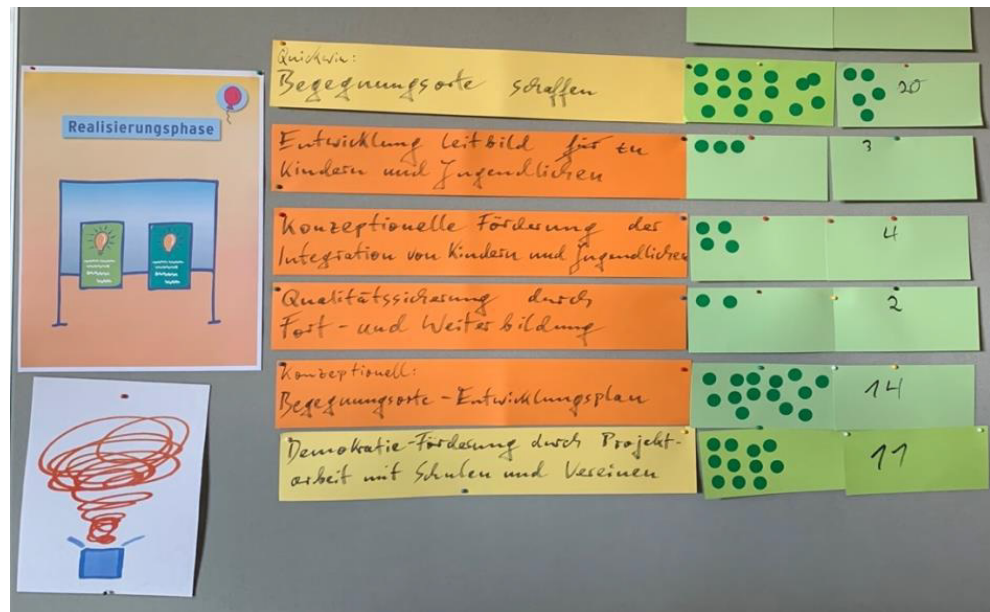 Realisierungsphase
Quickwin:
Begegnungsorte schaffen
20
Entwicklung Leitbild für zu
Kindern und Jugendlichen
3
Konzeptionelle Förderung der
Integration von Kindern und Jugendlichen
4
Qualitätssicherung durch
Fort- und Weiterbildung
2
Konzeptionell:
Begegnungsorte-Entwicklungsplan
14
Demokratie-Förderung durch Projekt-
arbeit mit Schulen und Vereinen
11